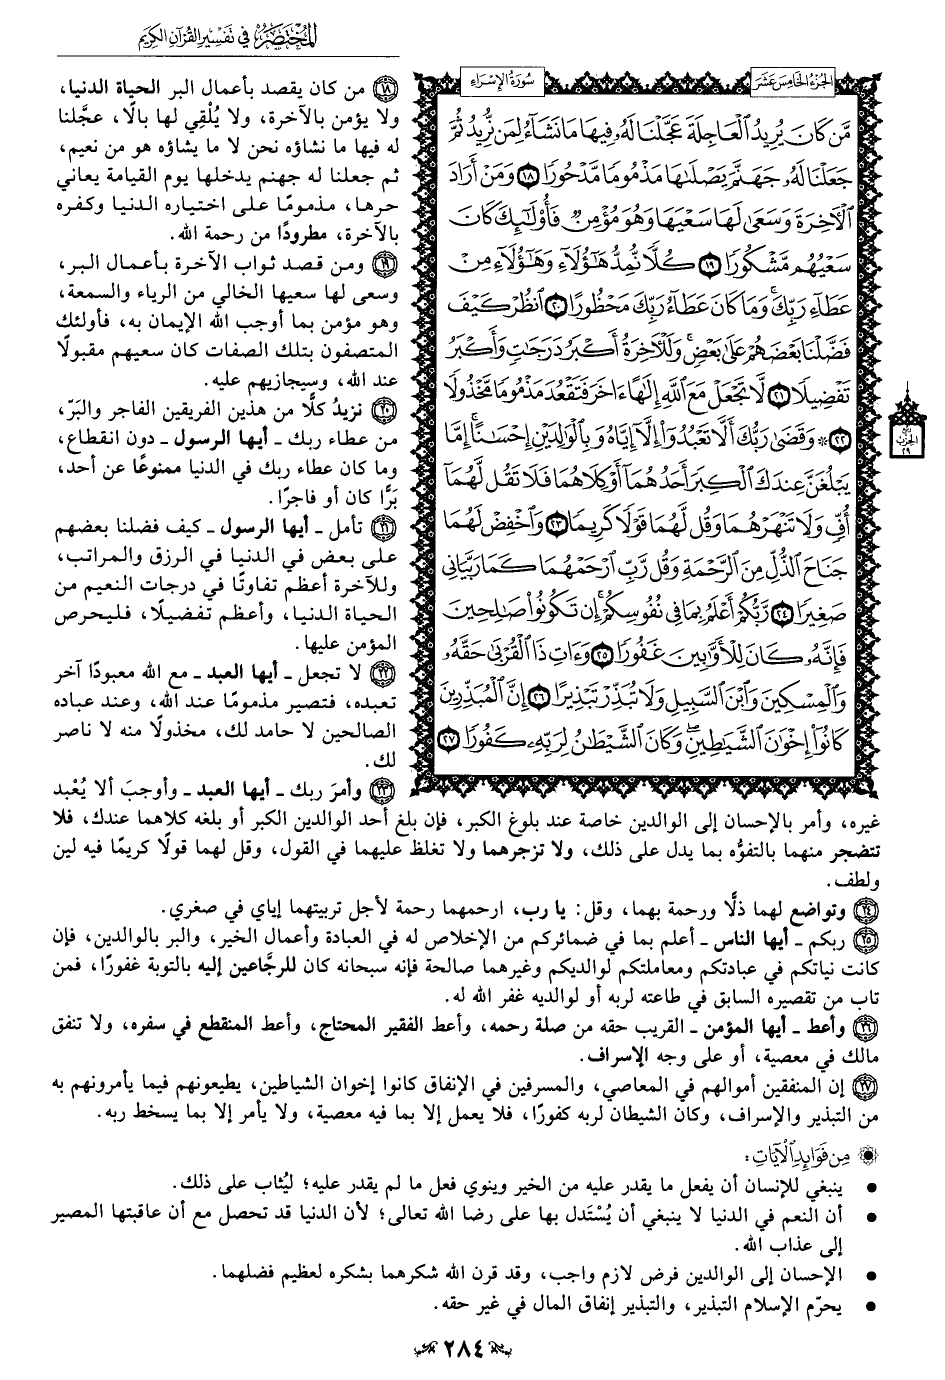 المختصر في تفسير القرآن الكريم
الجزء الخامس عشر
سورة الإسراء
مَّن كَانَ يُرِيدُ ٱلْعَاجِلَةَ عَجَّلْنَا لَهُۥ فِيهَا مَا نَشَآءُ لِمَن نُّرِيدُ ثُمَّ
جَعَلْنَا لَهُۥ جَهَنَّمَ يَصْلَىٰهَا مَذْمُومًا مَّدْحُورًا ١٨ وَمَنْ أَرَادَ
ٱلْأَخِرَةَ وَسَعَىٰ لَهَا سَعْيَهَا وَهُوَ مُؤْمِنٌ فَأُو۟لَٰٓئِكَ كَانَ
سَعْيُهُم مَّشْكُورًا ١٩ كُلًّا نُّمِدُّ هَٰٓؤُلَآءِ وَهَٰٓؤُلَآءِ مِنْ
عَطَآءِ رَبِّكَ وَمَا كَانَ عَطَآءُ رَبِّكَ مَحْظُورًا ٢٠ ٱنظُرْ كَيْفَ
فَضَّلْنَا بَعْضَهُمْ عَلَىٰ بَعْضٍ وَلَلْأَخِرَةُ أَكْبَرُ دَرَجَٰتٍ وَأَكْبَرُ
تَفْضِيلًا ٢١ لَّا تَجْعَلْ مَعَ ٱللَّهِ إِلَٰهًا ءَاخَرَ فَتَقْعُدَ مَذْمُومًا مَّخْذُولًا
٢٢ ۞ وَقَضَىٰ رَبُّكَ أَلَّا تَعْبُدُوٓا۟ إِلَّآ إِيَّاهُ وَبِٱلْوَٰلِدَيْنِ إِحْسَٰنًا إِمَّا
يَبْلُغَنَّ عِندَكَ ٱلْكِبَرَ أَحَدُهُمَآ أَوْ كِلَاهُمَا فَلَا تَقُل لَّهُمَآ
أُفٍّ وَلَا تَنْهَرْهُمَا وَقُل لَّهُمَا قَوْلًا كَرِيمًا ٢٣ وَٱخْفِضْ لَهُمَا
جَنَاحَ ٱلذُّلِّ مِنَ ٱلرَّحْمَةِ وَقُل رَّبِّ ٱرْحَمْهُمَا كَمَا رَبَّيَانِي
صَغِيرًا ٢٤ رَّبُّكُمْ أَعْلَمُ بِمَا فِي نُفُوسِكُمْ إِن تَكُونُوا۟ صَٰلِحِينَ
فَإِنَّهُۥ كَانَ لِلْأَوَّٰبِينَ غَفُورًا ٢٥ وَءَاتِ ذَا ٱلْقُرْبَىٰ حَقَّهُۥ
وَٱلْمِسْكِينَ وَٱبْنَ ٱلسَّبِيلِ وَلَا تُبَذِّرْ تَبْذِيرًا ٢٦ إِنَّ ٱلْمُبَذِّرِينَ
كَانُوٓا۟ إِخْوَٰنَ ٱلشَّيَٰطِينِ وَكَانَ ٱلشَّيْطَٰنُ لِرَبِّهِۦ كَفُورًا ٢٧
ربع
الحزب
٢٩
١٨ من كان يقصد بأعمال البر الحياة الدنيا،
ولا يؤمن بالآخرة، ولا يُلْقِي لها بالًا، عجَّلنا
له فيها ما نشاؤه نحن لا ما يشاؤه هو من نعيم،
ثم جعلنا له جهنم يدخلها يوم القيامة يعاني
حرها، مذمومًا على اختياره الدنيا وكفره
بالآخرة، مطرودًا من رحمة الله.
١٩ ومن قصد ثواب الآخرة بأعمال البر،
وسعى لها سعيها الخالي من الرياء والسمعة،
وهو مؤمن بما أوجب الله الإيمان به، فأولئك
المتصفون بتلك الصفات كان سعيهم مقبولًا
عند الله، وسيجازيهم عليه.
٢٠ نزيدُ كلًّا من هذين الفريقين الفاجر والبَرّ،
من عطاء ربك ـ أيها الرسول ـ دون انقطاع،
وما كان عطاء ربك في الدنيا ممنوعًا عن أحد،
بَرًّا كان أو فاجرًا.
٢١ تأمل ـ أيها الرسول ـ كيف فضلنا بعضهم
على بعض في الدنيا في الرزق والمراتب،
وللآخرة أعظم تفاوتًا في درجات النعيم من
الحياة الدنيا، وأعظم تفضيلًا، فليحرص
المؤمن عليها.
٢٢ لا تجعل ـ أيها العبد ـ مع الله معبودًا آخر
تعبده، فتصير مذمومًا عند الله، وعند عباده
الصالحين لا حامد لك، مخذولًا منه لا ناصر
لك.
٢٣ وأمرَ ربك ـ أيها العبد ـ وأوجبَ ألا يُعْبد
غيره، وأمر بالإحسان إلى الوالدين خاصة عند بلوغ الكبر، فإن بلغ أحد الوالدين الكبر أو بلغه كلاهما عندك، فلا
تتضجر منهما بالتفوُّه بما يدل على ذلك، ولا تزجرهما ولا تغلظ عليهما في القول، وقل لهما قولًا كريمًا فيه لين
ولطف.
٢٤ وتواضع لهما ذلًّا ورحمة بهما، وقل: يا رب، ارحمهما رحمة لأجل تربيتهما إياي في صغري.
٢٥ ربكم ـ أيها الناس ـ أعلم بما في ضمائركم من الإخلاص له في العبادة وأعمال الخير، والبر بالوالدين، فإن
كانت نياتكم في عبادتكم ومعاملتكم لوالديكم وغيرهما صالحة فإنه سبحانه كان للرجَّاعين إليه بالتوبة غفورًا، فمن
تاب من تقصيره السابق في طاعته لربه أو لوالديه غفر الله له.
٢٦ وأعط ـ أيها المؤمن ـ القريب حقه من صلة رحمه، وأعط الفقير المحتاج، وأعط المنقطع في سفره، ولا تنفق
مالك في معصية، أو على وجه الإسراف.
٢٧ إن المنفقين أموالهم في المعاصي، والمسرفين في الإنفاق كانوا إخوان الشياطين، يطيعونهم فيما يأمرونهم به
من التبذير والإسراف، وكان الشيطان لربه كفورًا، فلا يعمل إلا بما فيه معصية، ولا يأمر إلا بما يسخط ربه.
من فوائد الآيات:
• ينبغي للإنسان أن يفعل ما يقدر عليه من الخير وينوي فعل ما لم يقدر عليه؛ ليُثاب على ذلك.
• أن النعم في الدنيا لا ينبغي أن يُسْتَدل بها على رضا الله تعالى؛ لأن الدنيا قد تحصل مع أن عاقبتها المصير
إلى عذاب الله.
• الإحسان إلى الوالدين فرض لازم واجب، وقد قرن الله شكرهما بشكره لعظيم فضلهما.
• يحرّم الإسلام التبذير، والتبذير إنفاق المال في غير حقه.
٢٨٤